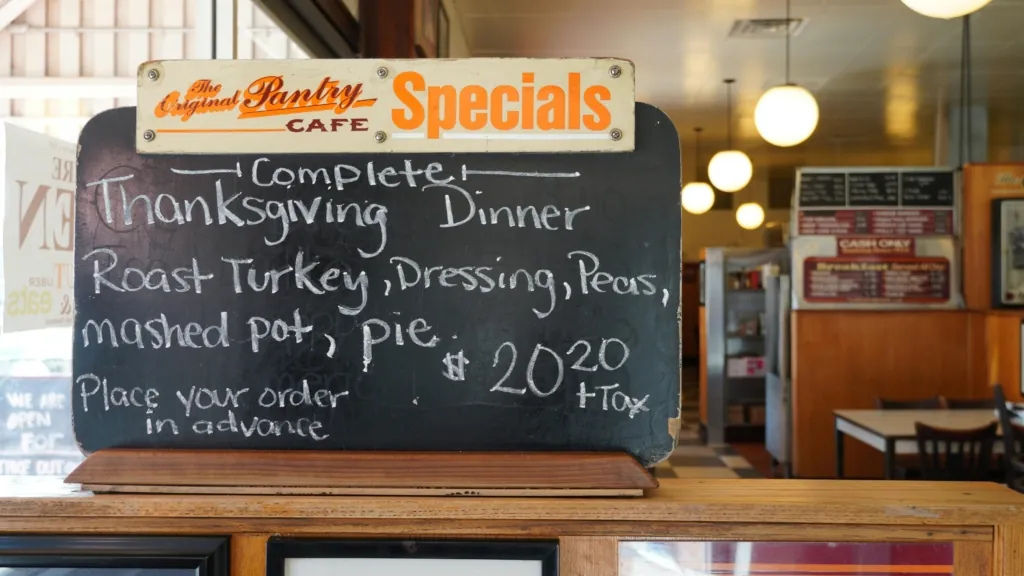 The
Original Pantry
CAFE
Specials
Complete
Thanksgiving Dinner
Roast Turkey, Dressing, Peas,
mashed pot, pie.
$ 20 20
+Tax
Place your order
in advance
WE ARE
OPEN
FOR
TAKE OUT
UBER
eats
&
CASH ONLY